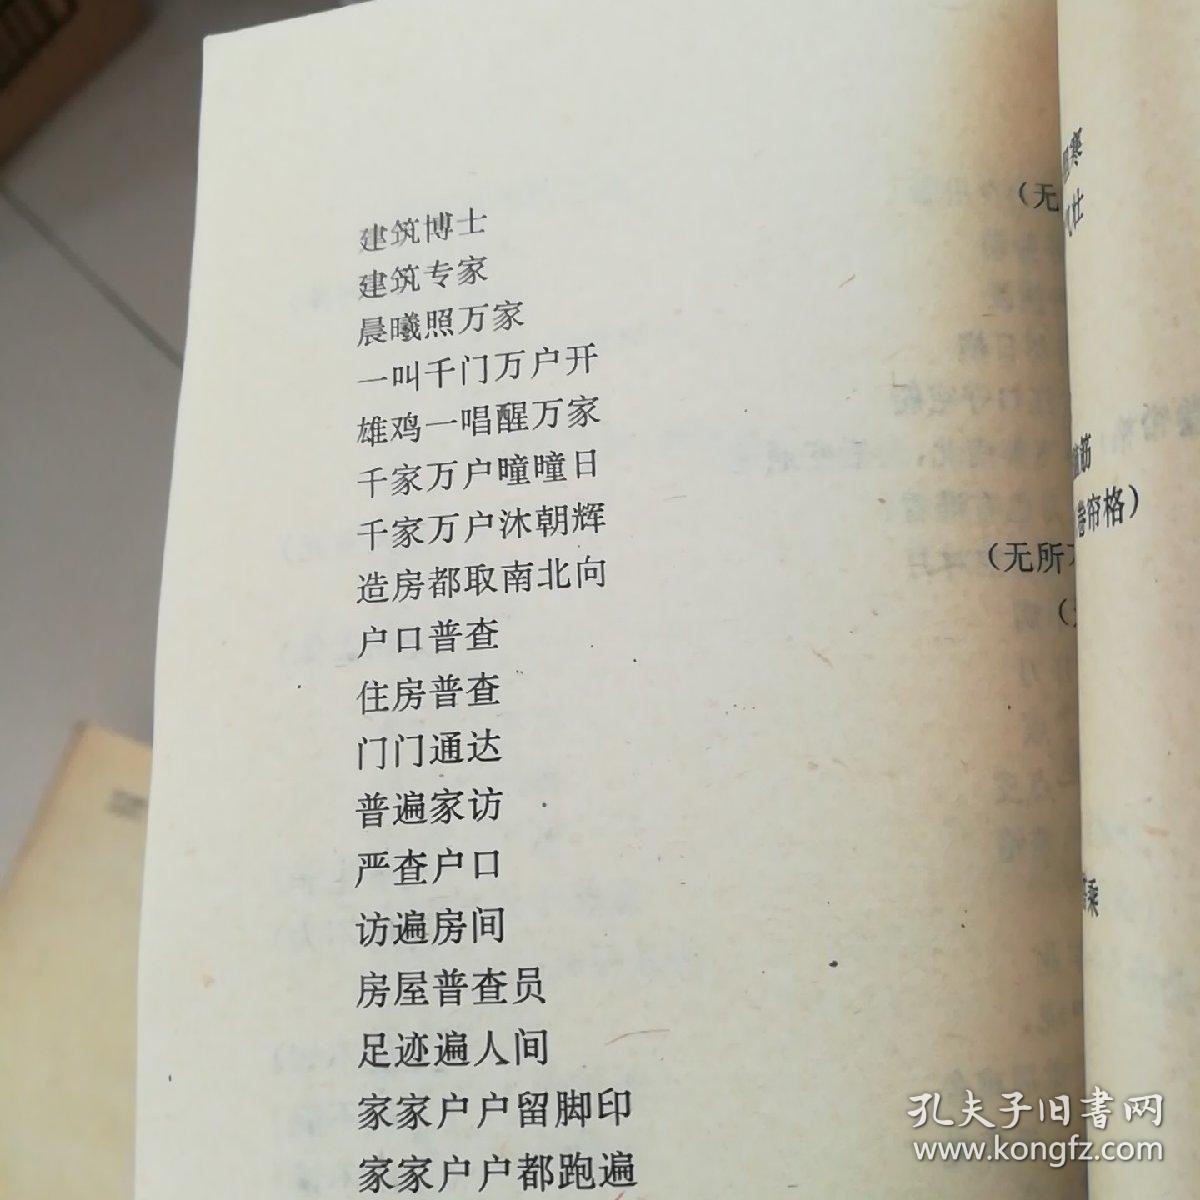 建筑博士
建筑专家
晨曦照万家
一叫千门万户开
雄鸡一唱醒万家
千家万户曈曈日
千家万户沐朝辉
造房都取南北向
户口普查
住房普查
门门通达
普遍家访
严查户口
访遍房间
房屋普查员
足迹遍人间
家家户户留脚印
家家户户都跑遍
（无
（无所
寒
壮
筋
卷帘格）
乘
孔夫子旧书网
www.kongfz.com